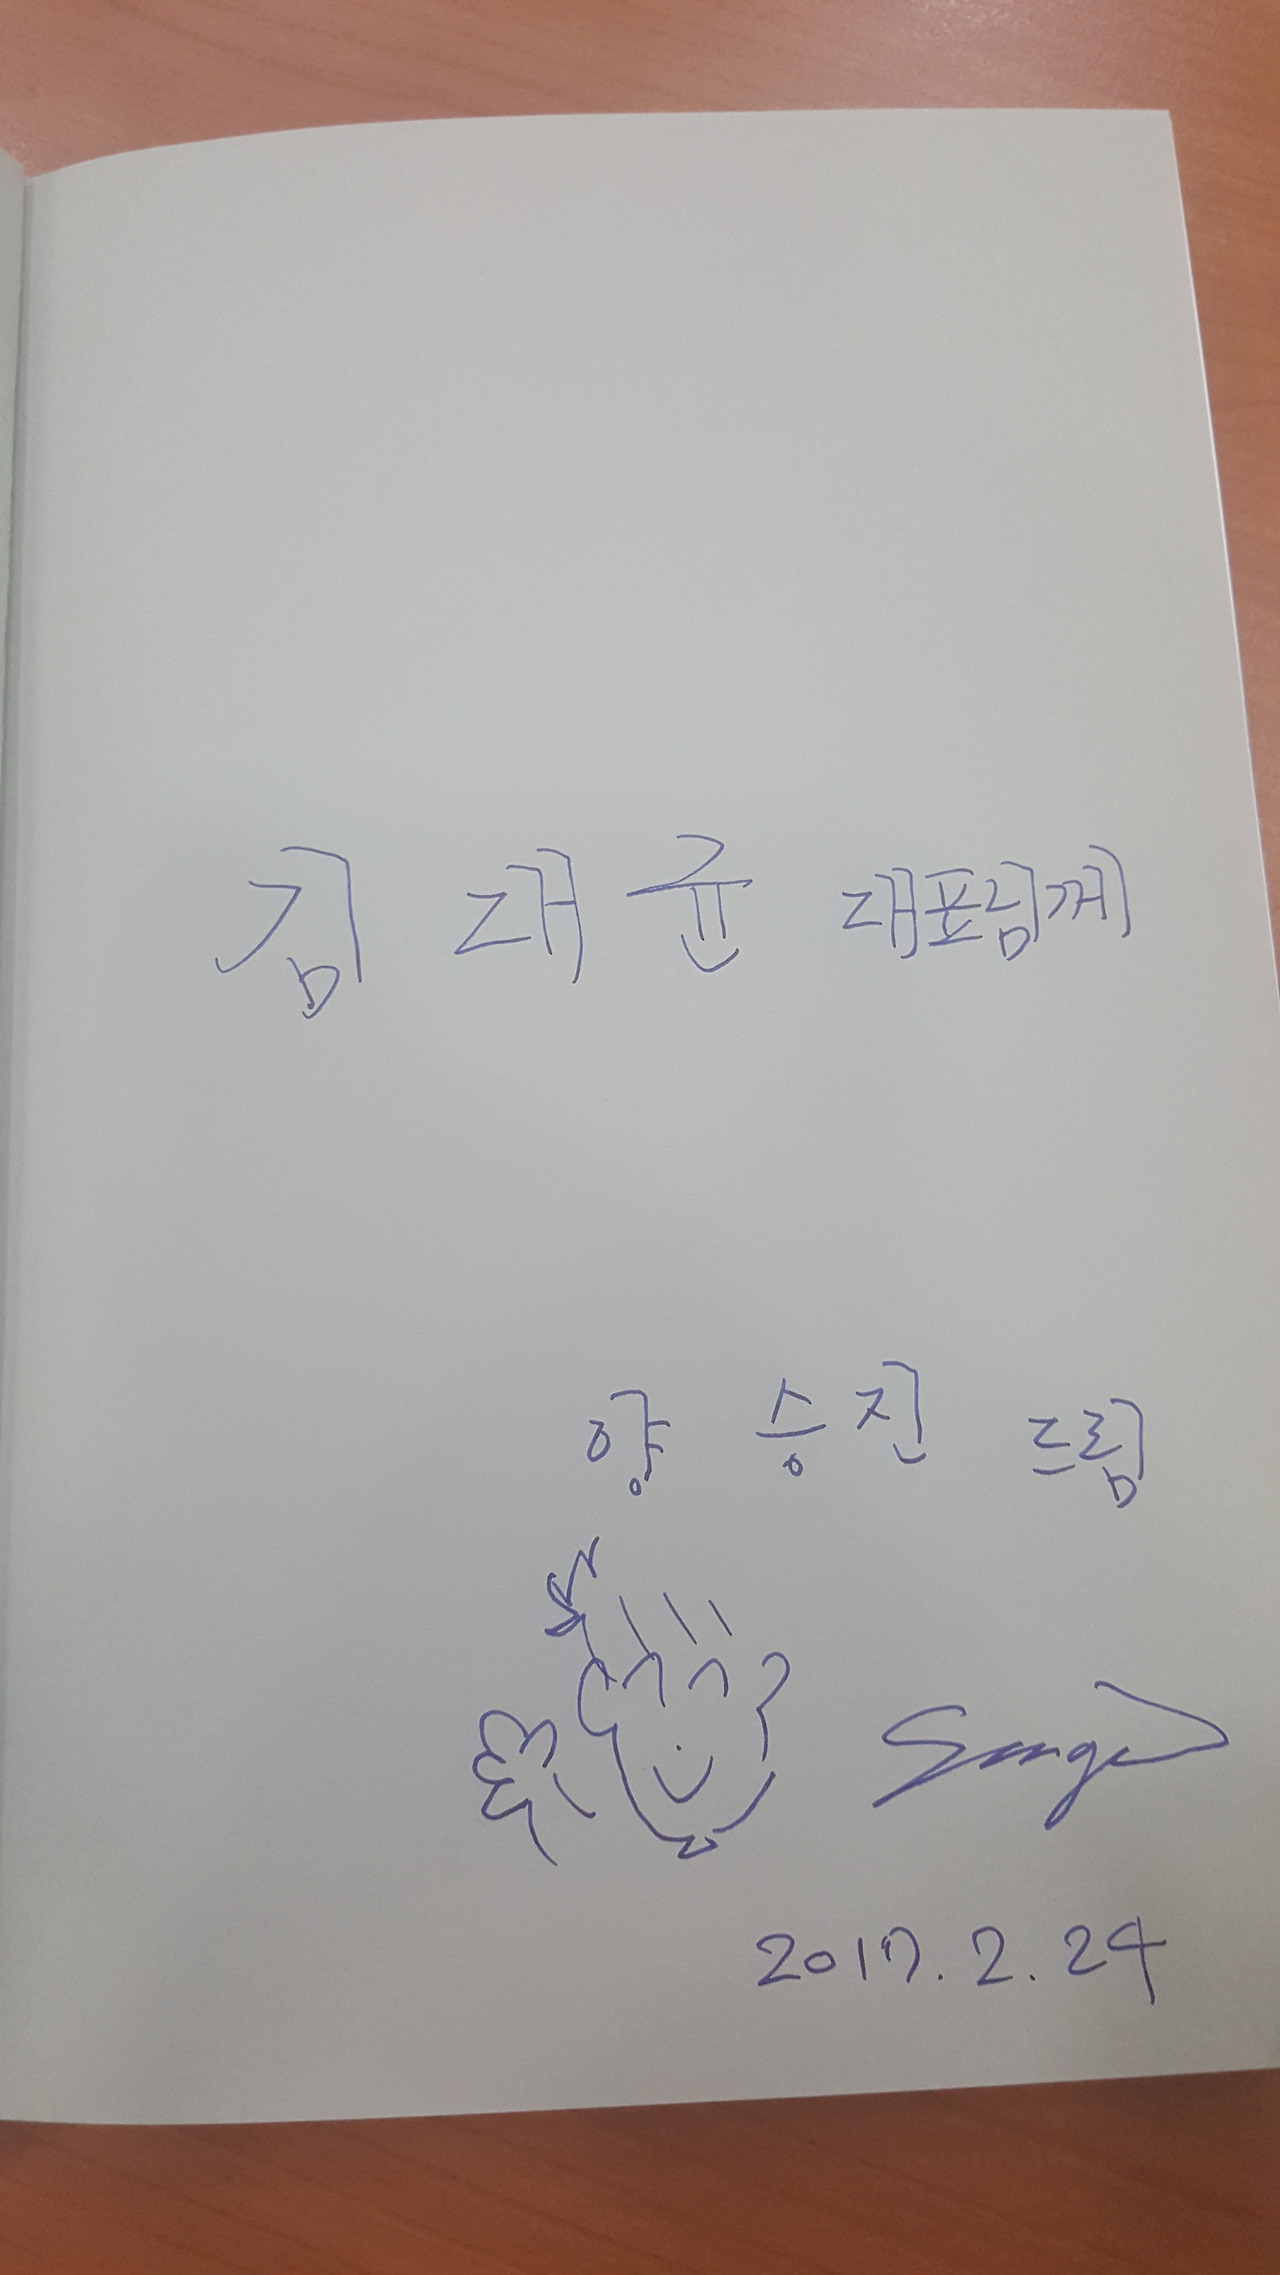 김 대균 대표님께
양 승진 드림
2017. 2. 24